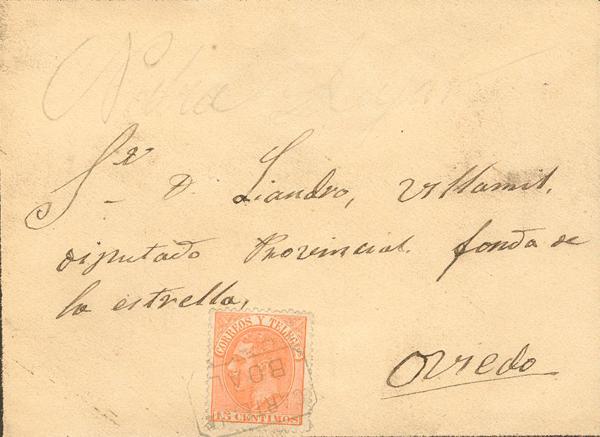 Sr D. Liandro, Villamil,
diputado Provincial. fonda de
la estrella,
CORREOS Y TELEG
BOAL
15 CENTIMOS
Oviedo